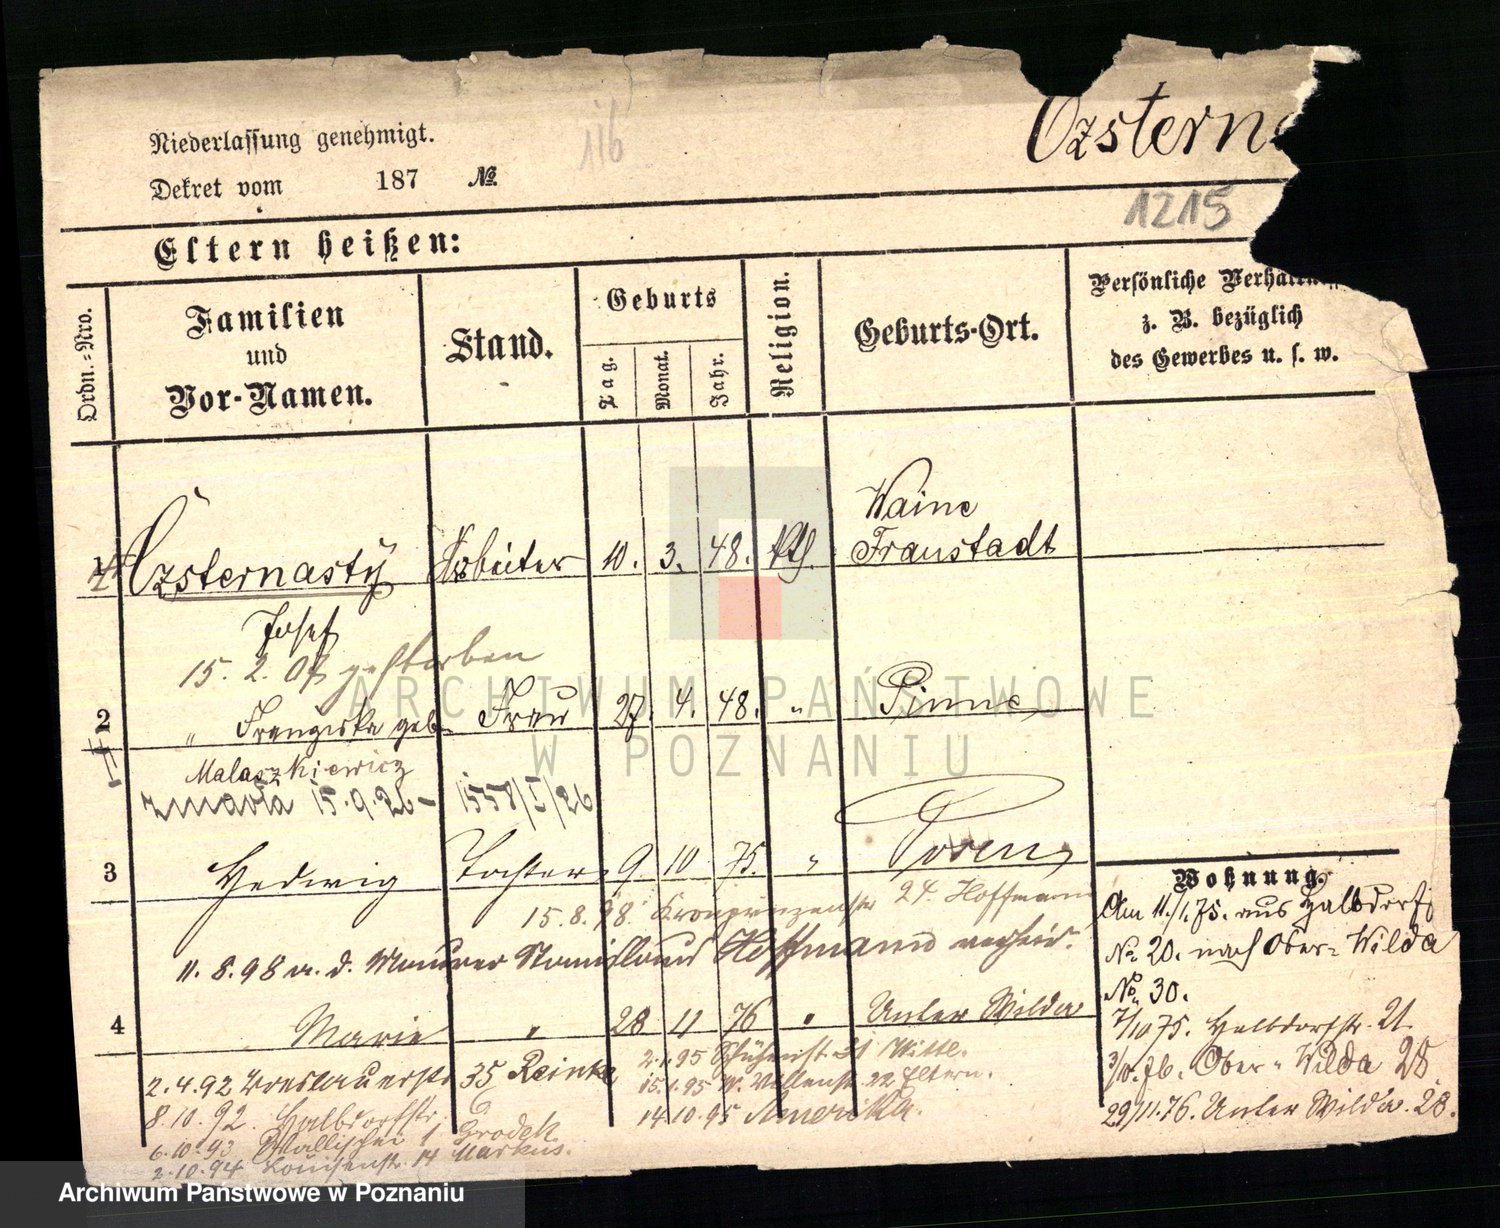 116
Ozstern
Niederlassung genehmigt.
Dekret vom 187 No.
1215
Eltern heißen:
Ordn.-Nro.
Familien
und
Vor-Namen.
Stand.
Geburts
Tag.
Monat.
Jahr.
Religion.
Geburts-Ort.
Persönliche Verhältniss
z. B. bezüglich
des Gewerbes u. s. w.
Waine
1 Ozsternasty Arbeiter 10. 3. 48. kth. Fraustadt
Josef
15. 2. 07 gestorben
2 " Franziska geb. Frau 27. 4. 48. " Pinne
Malaszkiewicz
zmarła 15.9.26 - 1558/I/26
3 Hedwig Tochter 9. 10 75. " Posen
15.8.98. Kronprinzenstr 24. Hoffmann
11.8.98 a. d. Maurer Stanislaus Hoffmann verheir.
4 Marie " 28 11 76 " Unter Wilda
2.4.92 Breslauerstr 35 Reinke
8.10.92. Halbdorfstr.
6.10.93 Wallischei 1 Brodek
2.10.94 Louisenstr. 14 Markus.
95 Schützenstr. 31 Wittl.
15.1.95 22 Eltern.
14.10.95 Amerika.
Wohnung.
Am 11./1.75. aus Halbdorfs
No 20. nach Ober-Wilda
No. 30.
7/10 75. Halbdorfstr. 21.
3/10.76. Ober-Wilda 28
29/11.76. Unter Wilda. 28.
ARCHIWUM PAŃSTWOWE
W POZNANIU
Archiwum Państwowe w Poznaniu